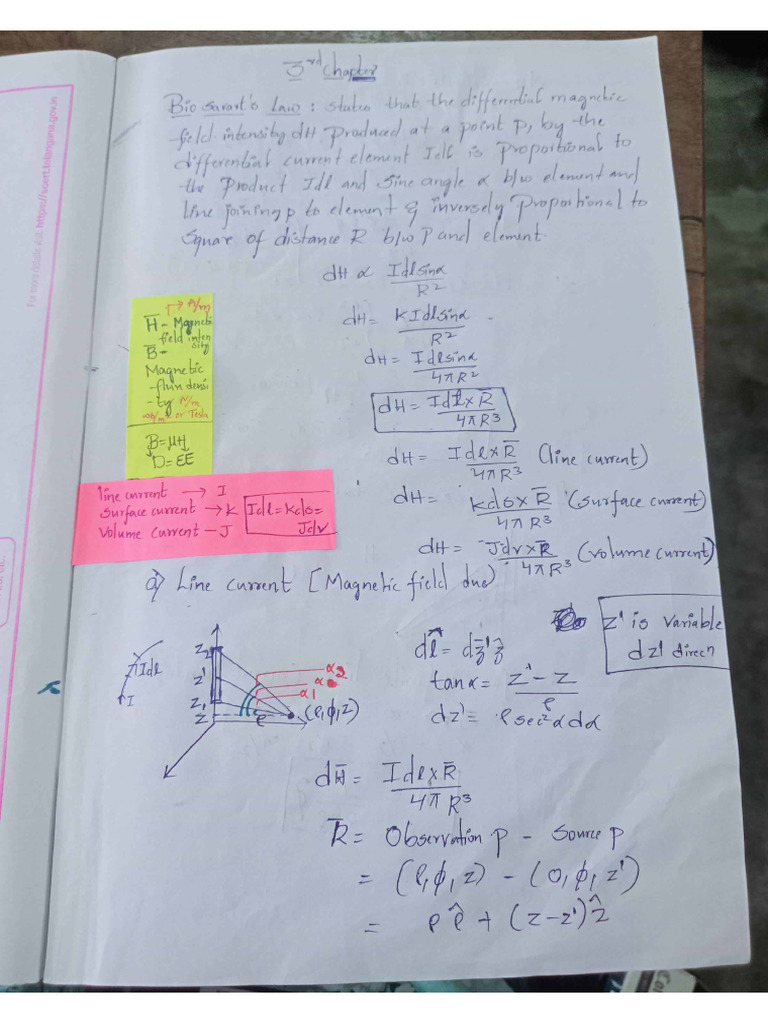 3rd chapter
Bio savart's Law : states that the differential magnetic
field intensity dH produced at a point p, by the
differential current element Idl is proportional to
the product Idl and sine angle α b/w element and
line joining p to element & inversely proportional to
square of distance R b/w P and element.
dH ∝ Idlsinα / R²
dH = KIdlsinα / R²
dH = Idlsinα / 4πR²
dH = Idl̄×R̄ / 4πR³
→ A/m
H̄ - Magneti
field inten
sity
B̄ -
Magnetic
-flux densi
-ty A/m
wb/m² or Tesla
B=μH
D=εE
dH = Idl×R̄ / 4πR³ (line current)
dH = kds×R̄ / 4πR³ (surface current)
dH = Jdv×R̄ / 4πR³ (volume current)
line current → I
surface current → k
volume current - J
Idl=kds=
Jdv
a) Line current [Magnetic field due)
z' is variable
dz' direcⁿ
dl̄ = dz' ẑ
tanα = z'-z / ρ
dz' = ρsec²α dα
Idl
I
z₂
z'
z₁
z
ρ
α₂
α
α1
(ρ,ϕ,z)
dH̄ = Idl×R̄ / 4πR³
R̄ = Observation p - source p
= (ρ,ϕ,z) - (0,ϕ,z')
= ρρ̂ + (z-z')ẑ
For more details visit: https://scert.telangana.gov.in